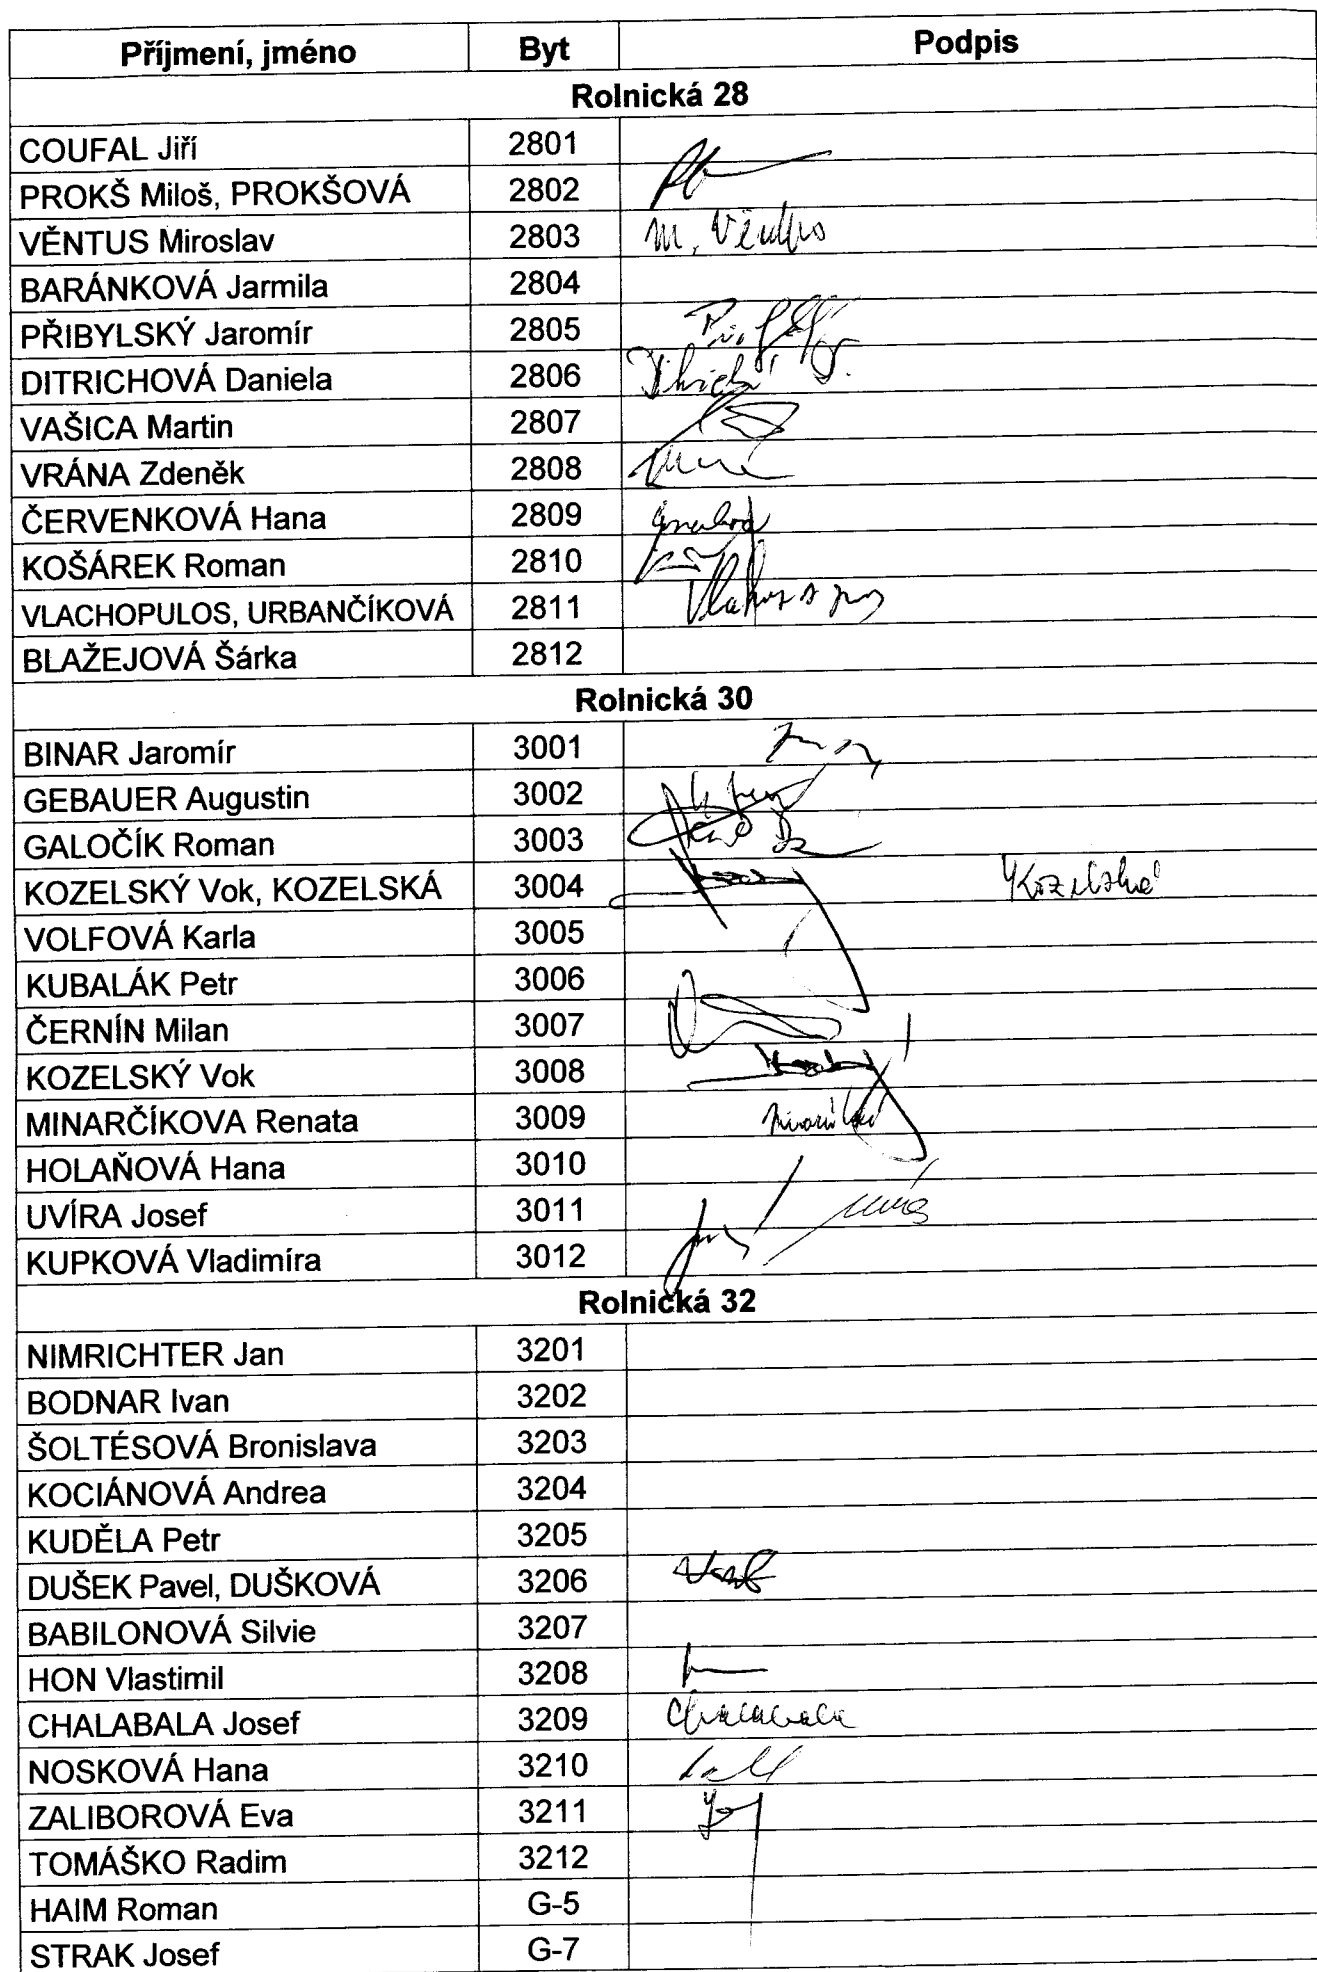 Příjmení, jméno Byt Podpis
Rolnická 28
COUFAL Jiří 2801
PROKŠ Miloš, PROKŠOVÁ 2802
VĚNTUS Miroslav 2803 M. Věntus
BARÁNKOVÁ Jarmila 2804
PŘIBYLSKÝ Jaromír 2805
DITRICHOVÁ Daniela 2806
VAŠICA Martin 2807
VRÁNA Zdeněk 2808
ČERVENKOVÁ Hana 2809
KOŠÁREK Roman 2810
VLACHOPULOS, URBANČÍKOVÁ 2811
BLAŽEJOVÁ Šárka 2812
Rolnická 30
BINAR Jaromír 3001
GEBAUER Augustin 3002
GALOČÍK Roman 3003
KOZELSKÝ Vok, KOZELSKÁ 3004 Kozelská
VOLFOVÁ Karla 3005
KUBALÁK Petr 3006
ČERNÍN Milan 3007
KOZELSKÝ Vok 3008
MINARČÍKOVA Renata 3009
HOLAŇOVÁ Hana 3010
UVÍRA Josef 3011
KUPKOVÁ Vladimíra 3012
Rolnická 32
NIMRICHTER Jan 3201
BODNAR Ivan 3202
ŠOLTÉSOVÁ Bronislava 3203
KOCIÁNOVÁ Andrea 3204
KUDĚLA Petr 3205
DUŠEK Pavel, DUŠKOVÁ 3206
BABILONOVÁ Silvie 3207
HON Vlastimil 3208
CHALABALA Josef 3209 Chalabala
NOSKOVÁ Hana 3210
ZALIBOROVÁ Eva 3211
TOMÁŠKO Radim 3212
HAIM Roman G-5
STRAK Josef G-7